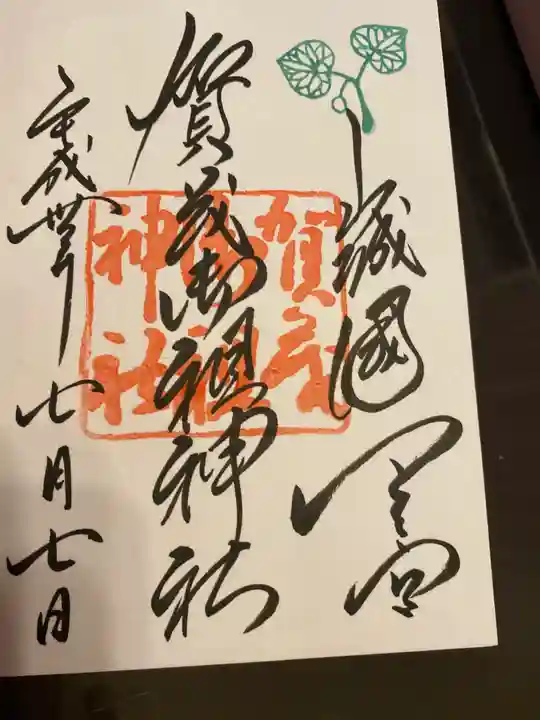 山城國一宮
賀茂御祖神社
平成卅年七月七日
賀茂
御祖
神社